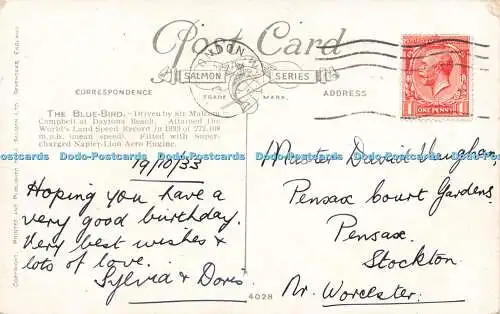 Post Card
LONDON
SALMON SERIES
TRADE MARK
CORRESPONDENCE
ADDRESS
THE BLUE-BIRD.—Driven by Sir Malcolm
Campbell at Daytona Beach. Attained the
World's Land Speed Record in 1933 of 272.108
m.p.h. (mean speed). Fitted with Super-
charged Napier-Lion Aero Engine.
19/10/33
Hoping you have a
very good birthday.
Very best wishes &
lots of love.
Sylvia & Doris
Master David Vaughan,
Pensax Court Gardens
Pensax.
Stockton
Nr. Worcester.
1 ONE PENNY 1
4028
COPYRIGHT. PRINTED AND PUBLISHED BY J. SALMON LTD. SEVENOAKS, ENGLAND
Dodo-Postcards Dodo-Postcards Dodo-Postcards Dodo-Postcards Dodo-Postcards Dodo-Postcards